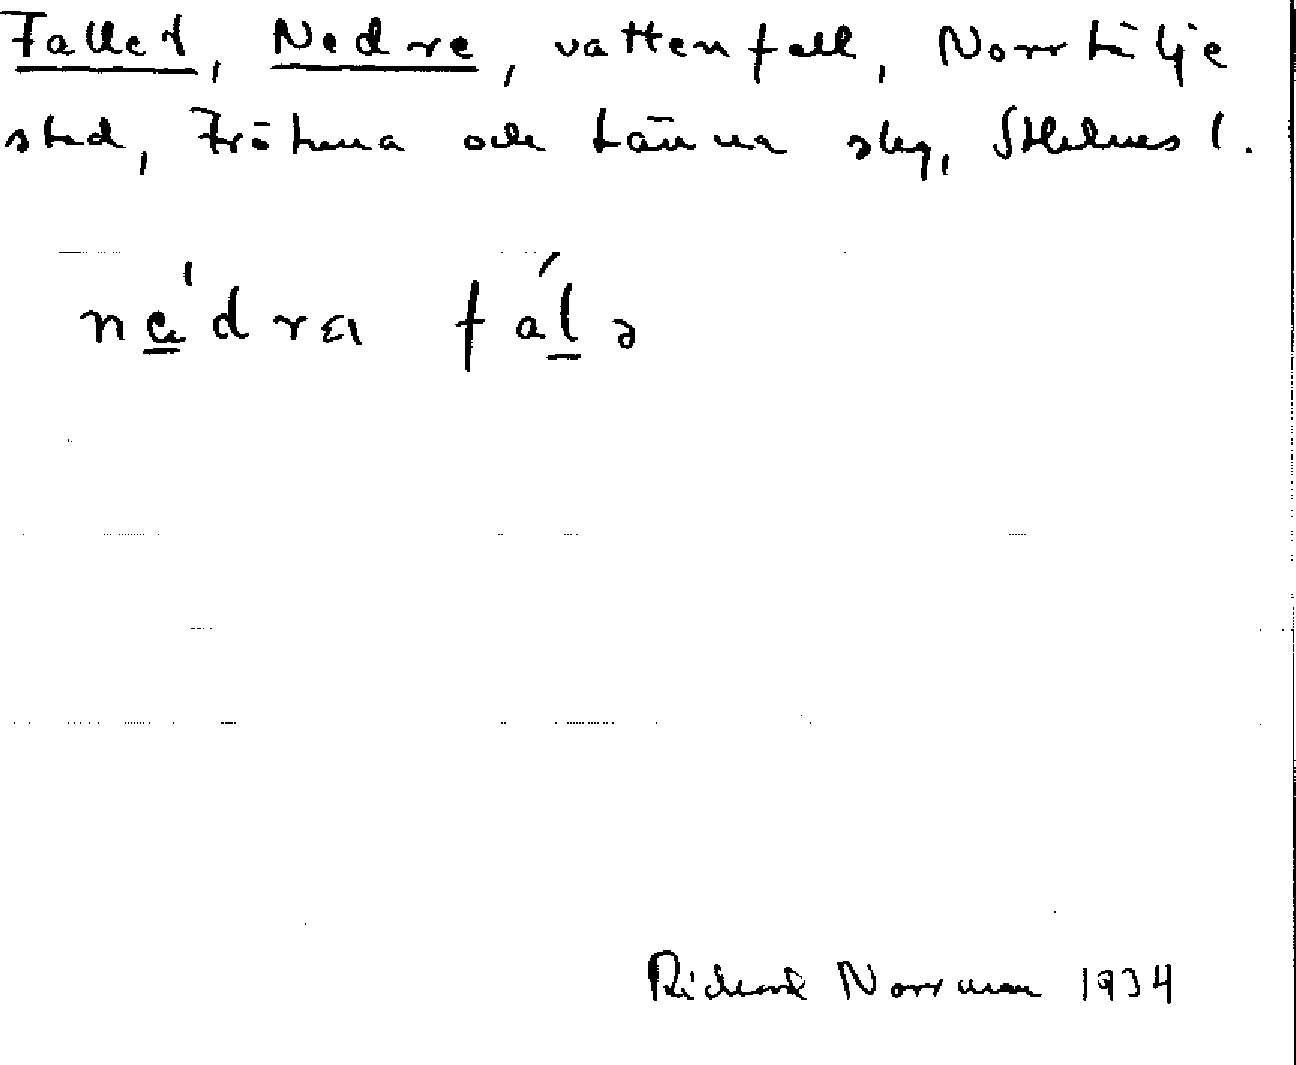 Fallet, Nedre, vattenfall, Norrtälje
stad, Frötuna och Länna slg, Sthlms l.
nedra falə
Richard Norrman 1934